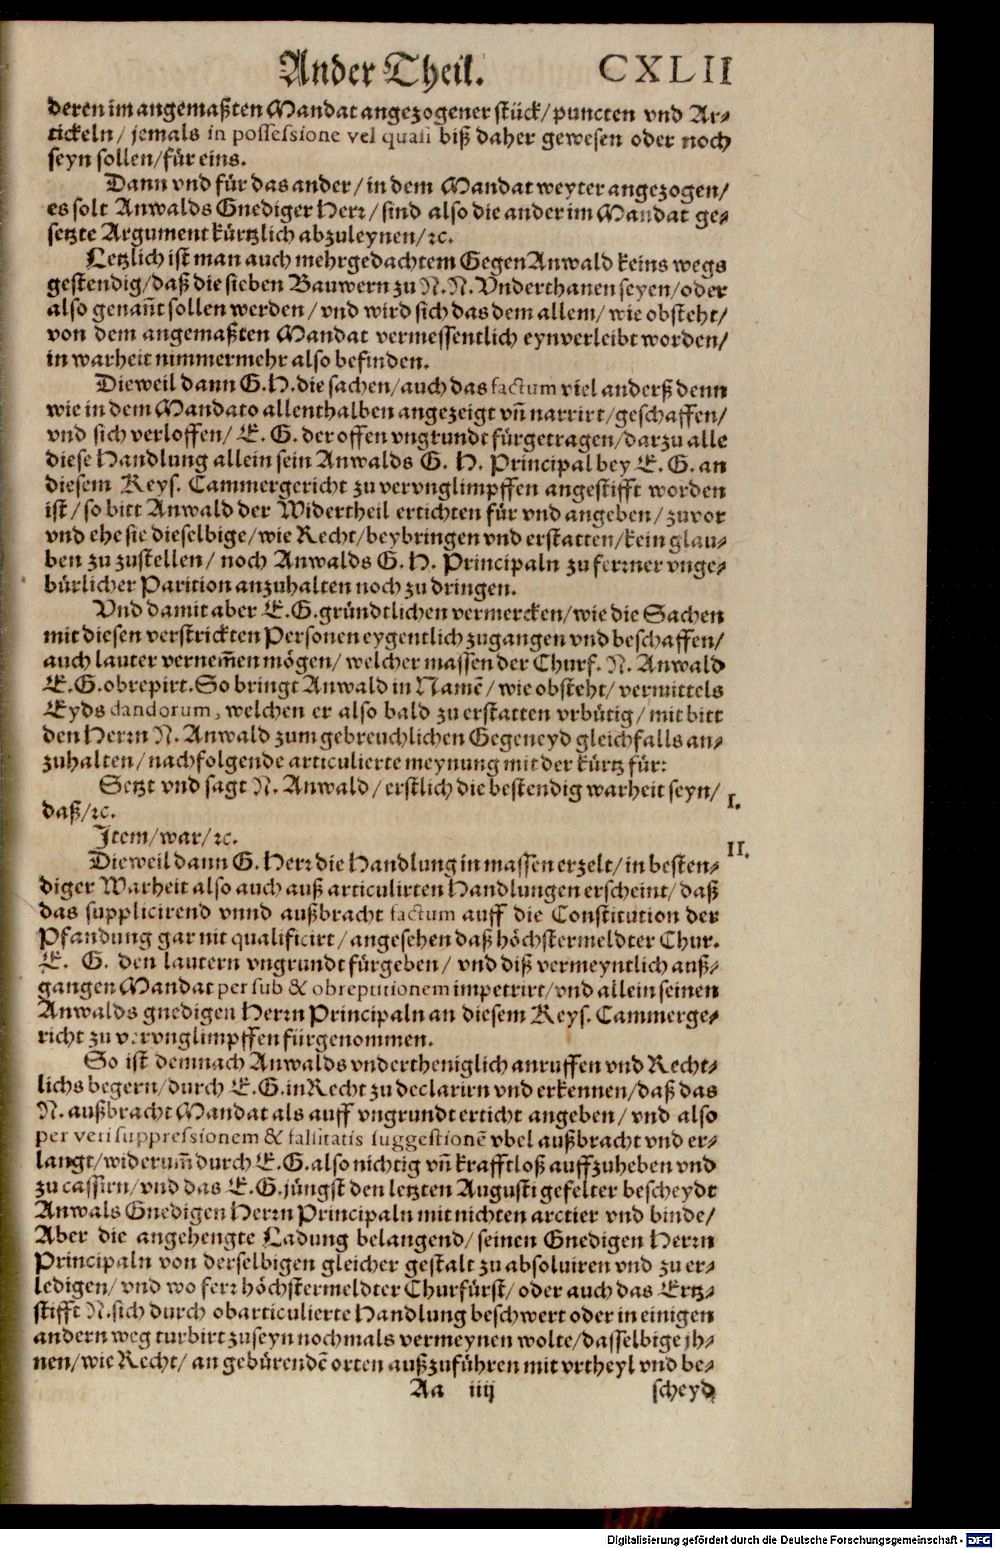 Ander Theil. CXLII
deren im angemaßten Mandat angezogener stück/ puncten vnd Ar-
tickeln/ jemals in possessione vel quasi biß daher gewesen oder noch
seyn sollen/ für eins.
Dann vnd für das ander/ in dem Mandat weyter angezogen/
es solt Anwalds Gnediger Herr/ sind also die ander im Mandat ge-
setzte Argument kürtzlich abzuleynen/ ꝛc.
Letzlich ist man auch mehrgedachtem GegenAnwald keins wegs
gestendig/ daß die sieben Bauwern zu N. N. Vnderthanen seyen/ oder
also genañt sollen werden/ vnd wird sich das dem allem/ wie obsteht/
von dem angemaßten Mandat vermessentlich eynverleibt worden/
in warheit nimmermehr also befinden.
Dieweil dann G. H. die sachen/ auch das factum viel anderß denn
wie in dem Mandato allenthalben angezeigt vñ narrirt/ geschaffen/
vnd sich verloffen/ E. G. der offen vngrundt fürgetragen/ darzu alle
diese Handlung allein sein Anwalds G. H. Principal bey E. G. an
diesem Keys. Cammergericht zu vervnglimpffen angestifft worden
ist/ so bitt Anwald der Widertheil ertichten für vnd angeben/ zuvor
vnd ehe sie dieselbige/ wie Recht/ beybringen vnd erstatten/ kein glau-
ben zu zustellen/ noch Anwalds G. H. Principaln zu ferrner vnge-
bürlicher Parition anzuhalten noch zu dringen.
Vnd damit aber E. G. gründtlichen vermercken/ wie die Sachen
mit diesen verstrickten Personen eygentlich zugangen vnd beschaffen/
auch lauter vernem̃en mögen/ welcher massen der Churf. N. Anwald
E. G. obrepirt. So bringt Anwald in Namẽ/ wie obsteht/ vermittels
Eyds dandorum, welchen er also bald zu erstatten vrbütig/ mit bitt
den Herrn N. Anwald zum gebreuchlichen Gegeneyd gleichfalls an-
zuhalten/ nachfolgende articulierte meynung mit der kürtz für:
Setzt vnd sagt N. Anwald/ erstlich die bestendig warheit seyn/ I.
daß/ ꝛc.
Item/ war/ ꝛc. II.
Dieweil dann G. Herr die Handlung in massen erzelt/ in besten-
diger Warheit also auch auß articulirten Handlungen erscheint/ daß
das supplicirend vnnd außbracht factum auff die Constitution der
Pfandung gar nit qualificirt/ angesehen daß höchstermeldter Chur.
E. G. den lautern vngrundt fürgeben/ vnd diß vermeyntlich auß-
gangen Mandat per sub & obreptitionem impetrirt/ vnd allein seinen
Anwalds gnedigen Herrn Principaln an diesem Keys. Cammerge-
richt zu vervnglimpffen fürgenommen.
So ist demnach Anwalds vndertheniglich anruffen vnd Recht-
lichs begern/ durch E. G. in Recht zu declarirn vnd erkennen/ daß das
N. außbracht Mandat als auff vngrundt erticht angeben/ vnd also
per veri suppressionem & falsitatis suggestionẽ vbel außbracht vnd er-
langt/ widerum̃ durch E. G. also nichtig vñ krafftloß auffzuheben vnd
zu cassirn/ vnd das E. G. jüngst den letzten Augusti gefelter bescheydt
Anwals Gnedigen Herrn Principaln mit nichten arctier vnd binde/
Aber die angehengte Ladung belangend/ seinen Gnedigen Herrn
Principaln von derselbigen gleicher gestalt zu absoluiren vnd zu er-
ledigen/ vnd wo ferr höchstermeldter Churfürst/ oder auch das Ertz-
stifft N. sich durch obarticulierte Handlung beschwert oder in einigen
andern weg turbirt zuseyn nochmals vermeynen wolte/ dasselbige jh-
nen/ wie Recht/ an gebürendẽ orten außzuführen mit vrtheyl vnd be-
Aa iiij scheyd
Digitalisierung gefördert durch die Deutsche Forschungsgemeinschaft - DFG